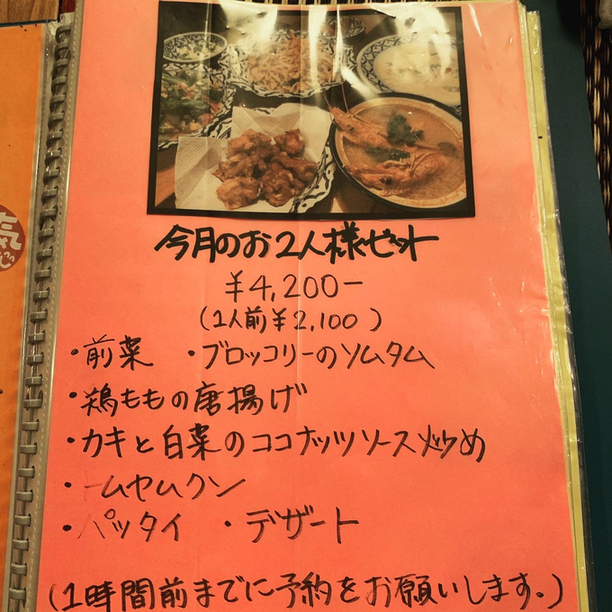 今月のお2人様セット
¥4,200-
(1人前¥2,100)
・前菜 ・ブロッコリーのソムタム
・鶏ももの唐揚げ
・カキと白菜のココナッツソース炒め
・トムヤムクン
・パッタイ ・デザート
(1時間前までに予約をお願いします。)
気